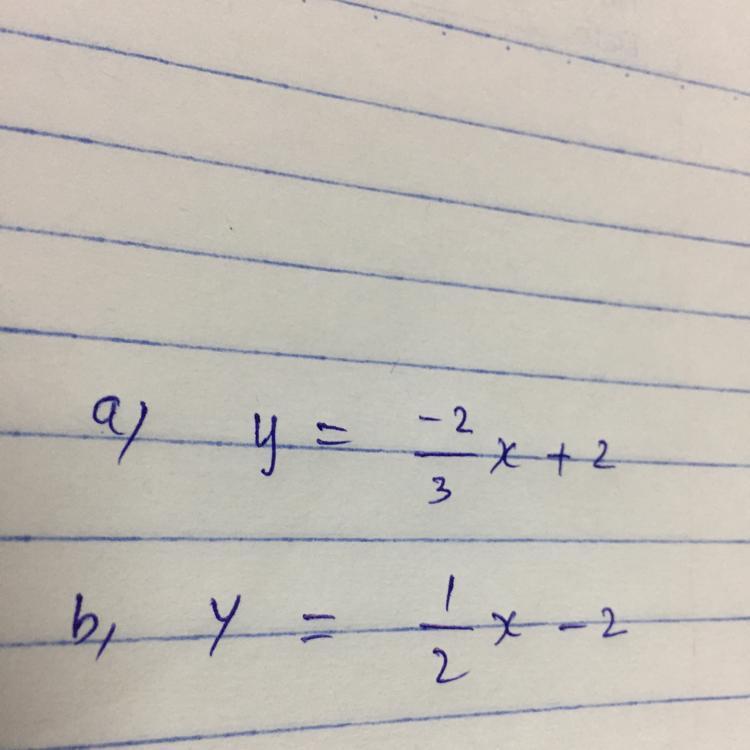 a) y = -2/3 x + 2
b, y = 1/2 x - 2